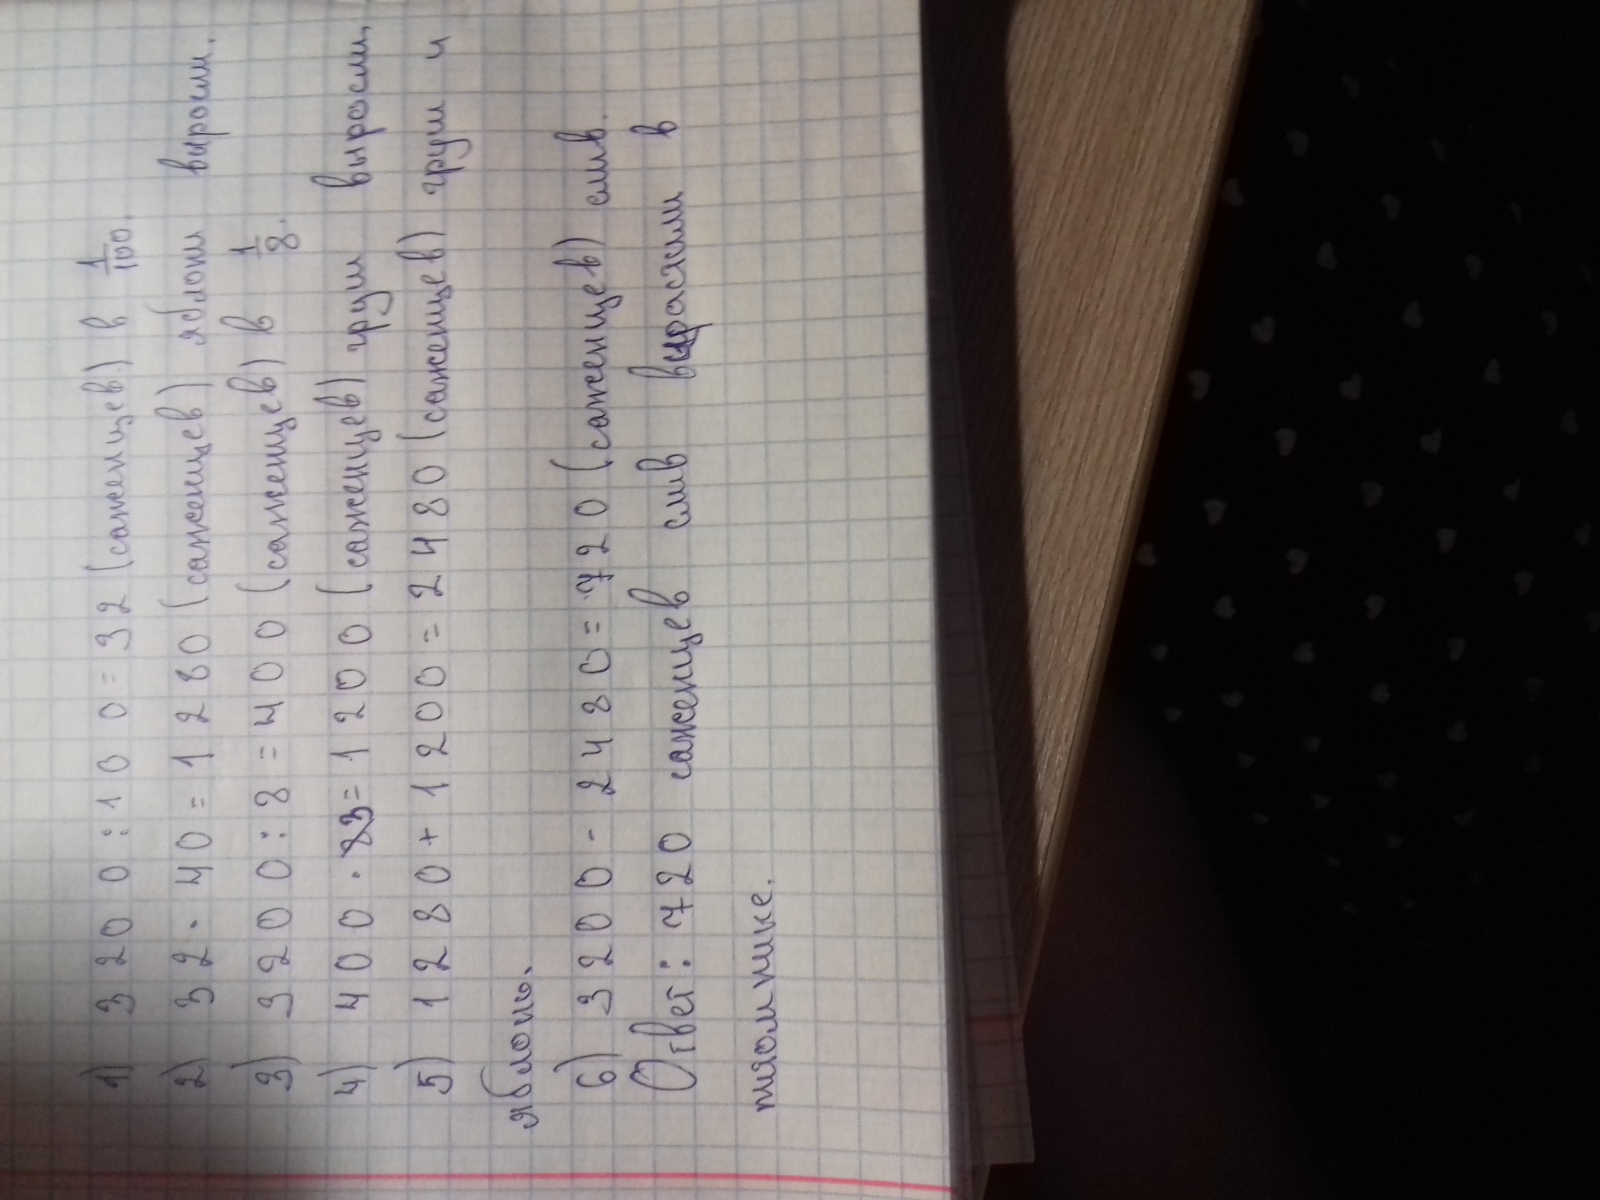 1) 3200:100=32(саженцев) в 1/100.
2) 32·40=1280(саженцев) яблони выросли.
3) 3200:8=400(саженцев) в 1/8.
4) 400·3=1200(саженцев) груш выросли.
5) 1280+1200=2480(саженцев) груш и
яблонь.
6) 3200-2480=720(саженцев) слив.
Ответ: 720 саженцев слив вырастили в
питомнике.